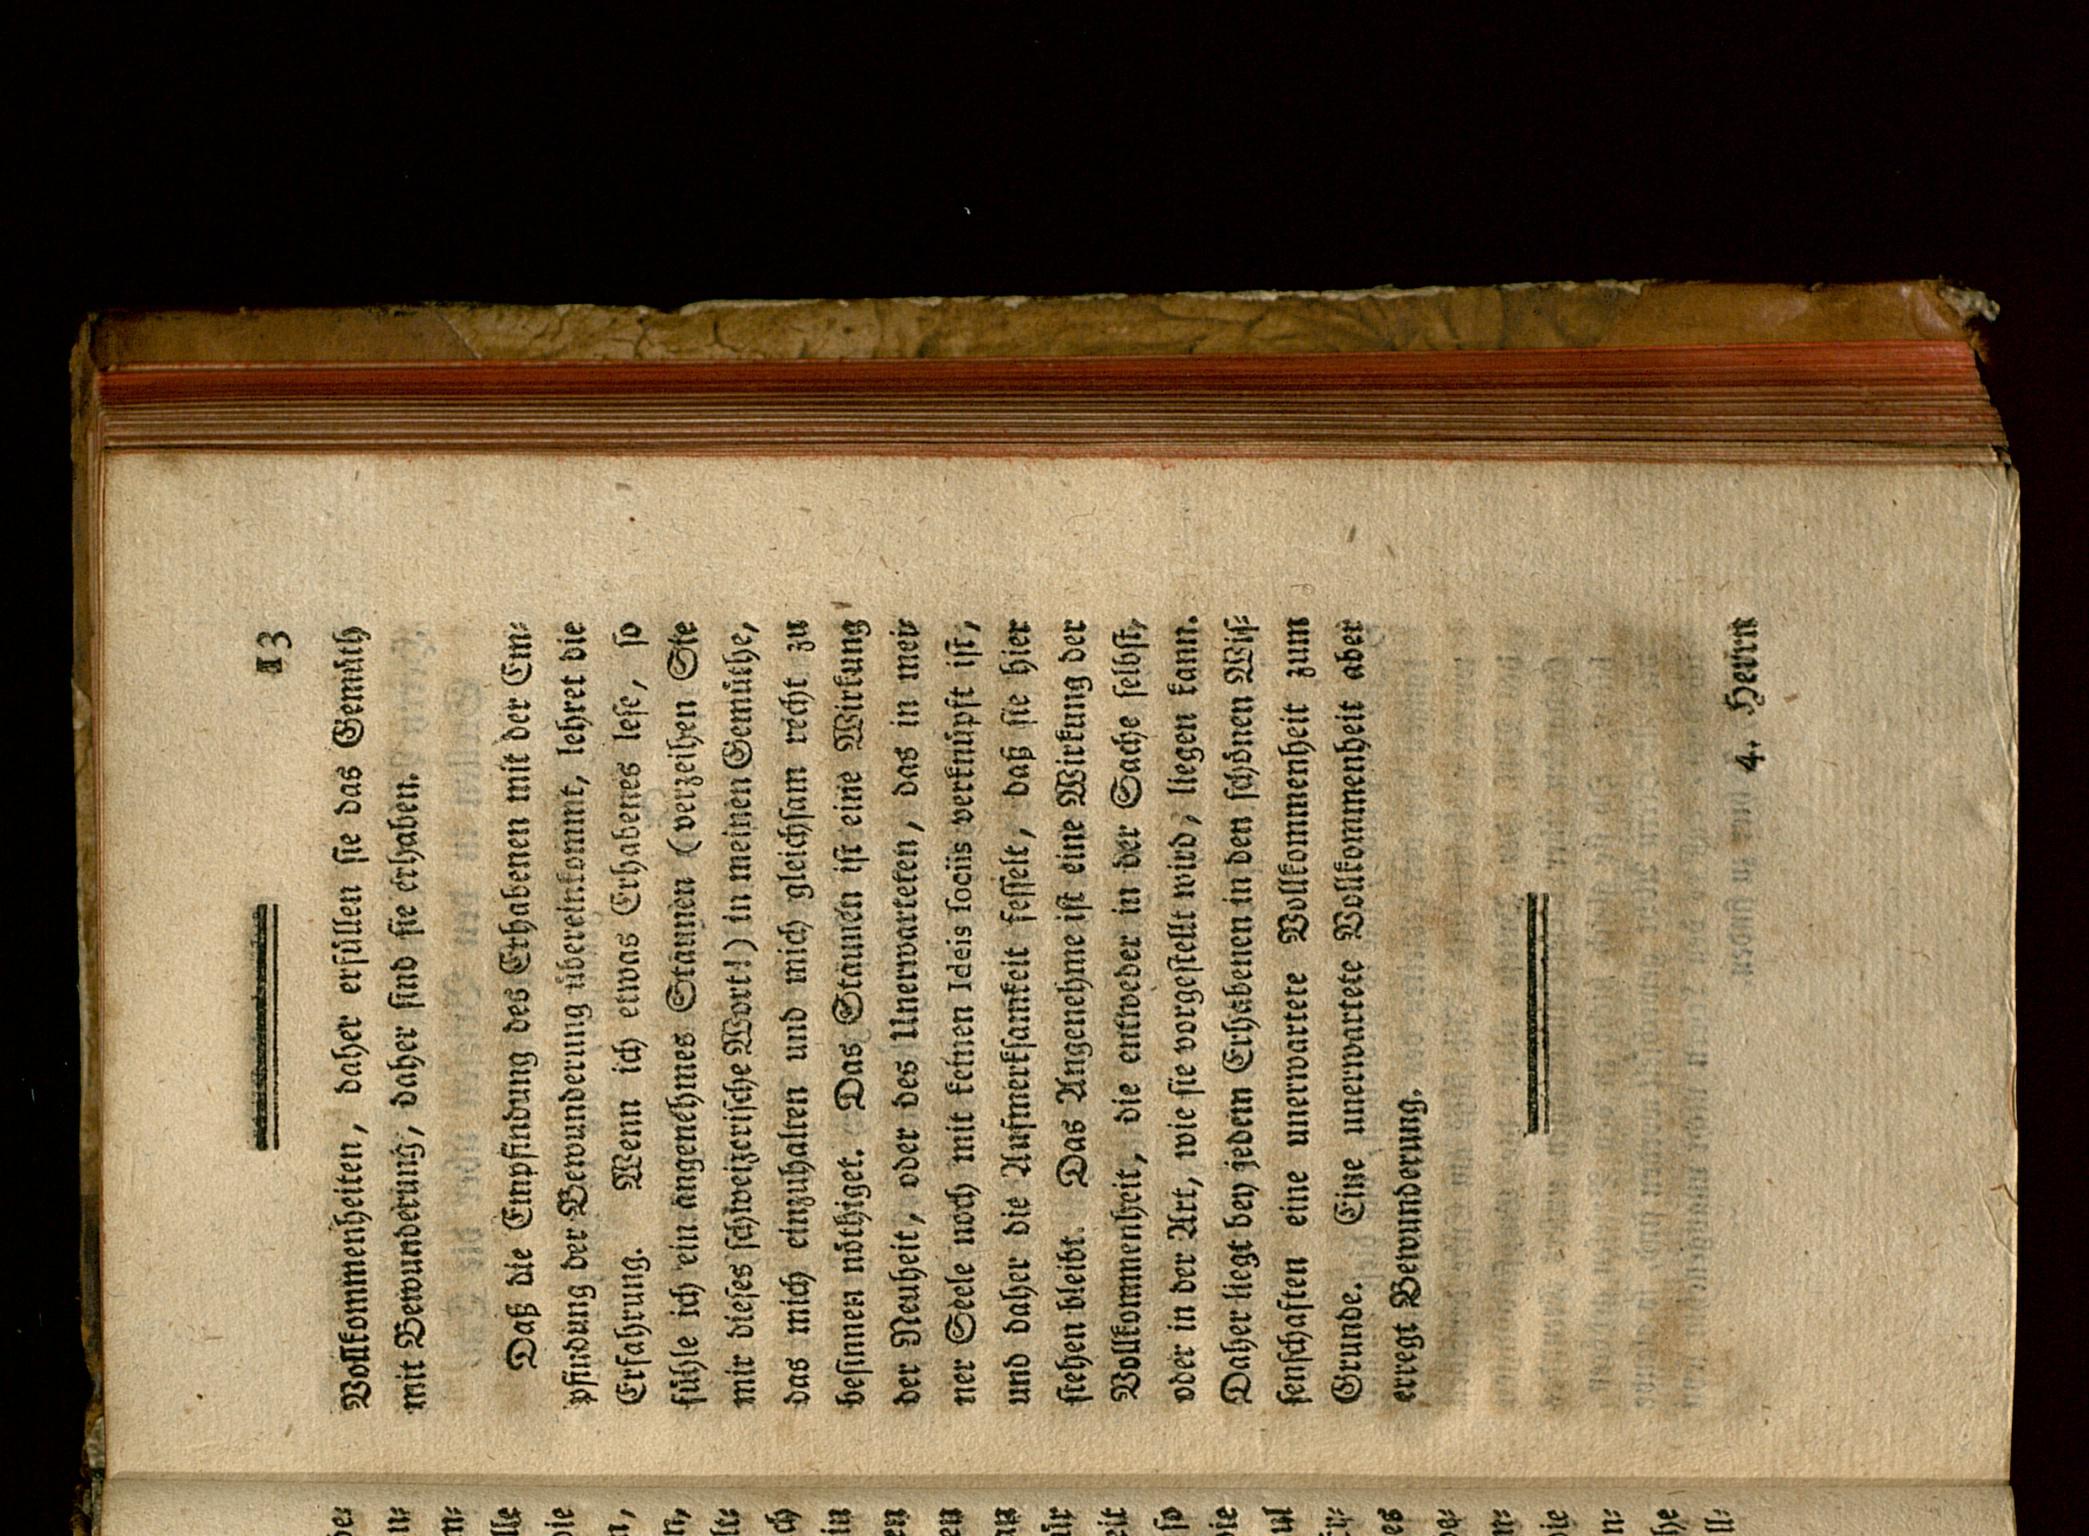 13
Vollkommenheiten, daher erfüllen sie das Gemüth
mit Bewunderung, daher sind sie erhaben.
Daß die Empfindung des Erhabenen mit der Em-
pfindung der Bewunderung übereinkommt, lehret die
Erfahrung. Wenn ich etwas Erhabenes lese, so
fühle ich ein angenehmes Staunen (verzeihen Sie
mir dieses schweizerische Wort!) in meinen Gemüthe,
das mich einzuhalten und mich gleichsam recht zu
besinnen nöthiget. Das Staunen ist eine Wirkung
der Neuheit, oder des Unerwarteten, das in mei-
ner Seele noch mit keinen Ideis sociis verknüpft ist,
und daher die Aufmerksamkeit fesselt, daß sie hier
stehen bleibt. Das Angenehme ist eine Wirkung der
Vollkommenheit, die entweder in der Sache selbst,
oder in der Art, wie sie vorgestellt wird, liegen kann.
Daher liegt bey jedem Erhabenen in den schönen Wis-
senschaften eine unerwartete Vollkommenheit zum
Grunde. Eine unerwartete Vollkommenheit aber
erregt Bewunderung.
4. Herrn